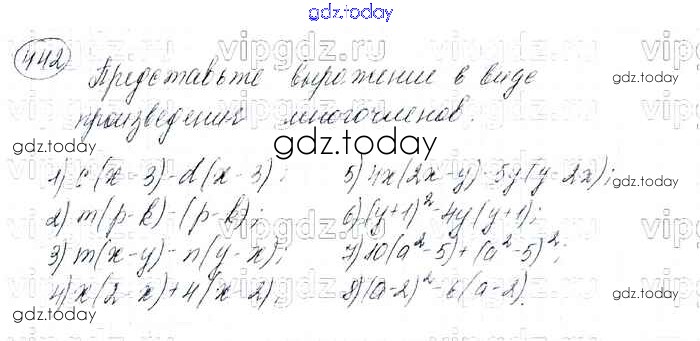 gdz.today
442
Представьте выражение в виде
произведения многочленов.
1) c(x-3)-d(x-3);
2) m(p-k)-(p-k);
3) m(x-y)-n(y-x);
4) x(2-x)+4(x-2);
5) 4x(2x-y)-5y(y-2x);
6) (y+1)²-4y(y+1);
7) 10(a²-5)+(a²-5)²;
8) (a-2)²-6(a-2).
vipgdz.ru
gdz.today
gdz.today
gdz.today
gdz.today
gdz.today
gdz.today
gdz.today